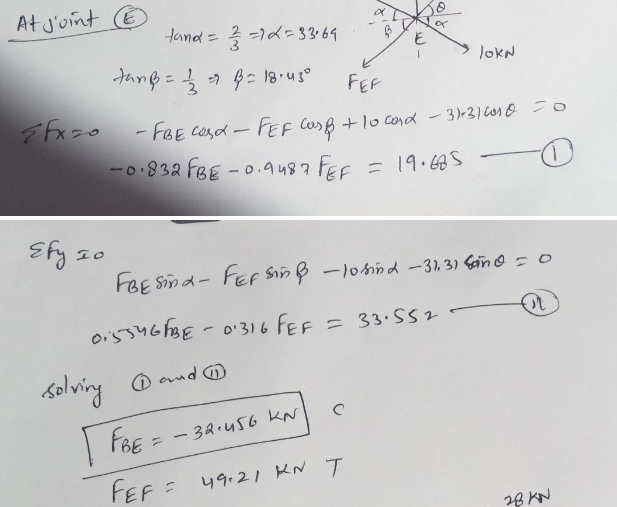 At joint Ⓔ
tanα = 2/3 ⇒ α = 33.69
tanβ = 1/3 ⇒ β = 18.43°
α θ
β α
E
10KN
FEF
ΣFx=0 -FBE cosα - FEF cosβ + 10 cosα - 31.31 cosθ = 0
-0.832 FBE - 0.9487 FEF = 19.685 — Ⓘ
ΣFy=0
FBE sinα - FEF sinβ - 10 sinα - 31.31 sinθ = 0
0.5546 FBE - 0.316 FEF = 33.552 — Ⅱ
solving Ⓘ and Ⅱ
FBE = -32.456 KN C
FEF = 49.21 KN T
28 KN